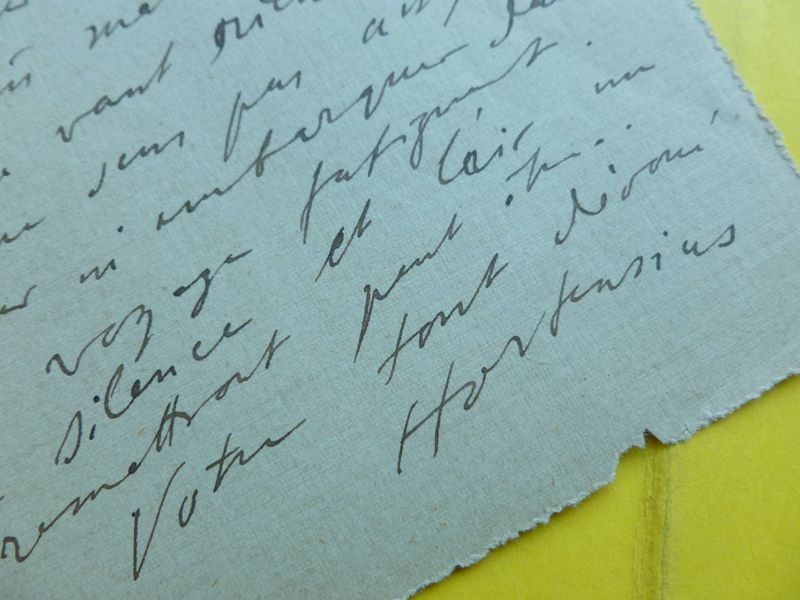 me
vant rien
sens pas
ni embarquer
voyage fatigant.
silence et l'air me
remettront peut-être..
Votre tout dévoué
Hortensius